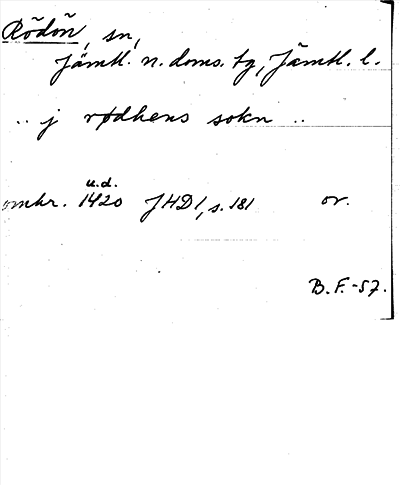 Rödön, sn,
Jämtl. n. doms. tg, Jämtl. l.
.. j rødhens sokn ..
u.d.
omkr. 1420 JHD 1, s. 181 or.
B.F.-57.